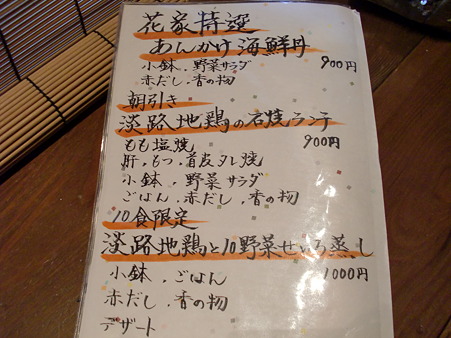 花家特選
あんかけ海鮮丼
小鉢、野菜サラダ 900円
赤だし、香の物
朝引き
淡路地鶏の石焼ランチ
もも塩焼 900円
肝、もつ、首皮タレ焼
小鉢、野菜サラダ
ごはん、赤だし、香の物
10食限定
淡路地鶏と10野菜せいろ蒸し
小鉢、ごはん 1000円
赤だし、香の物
デザート